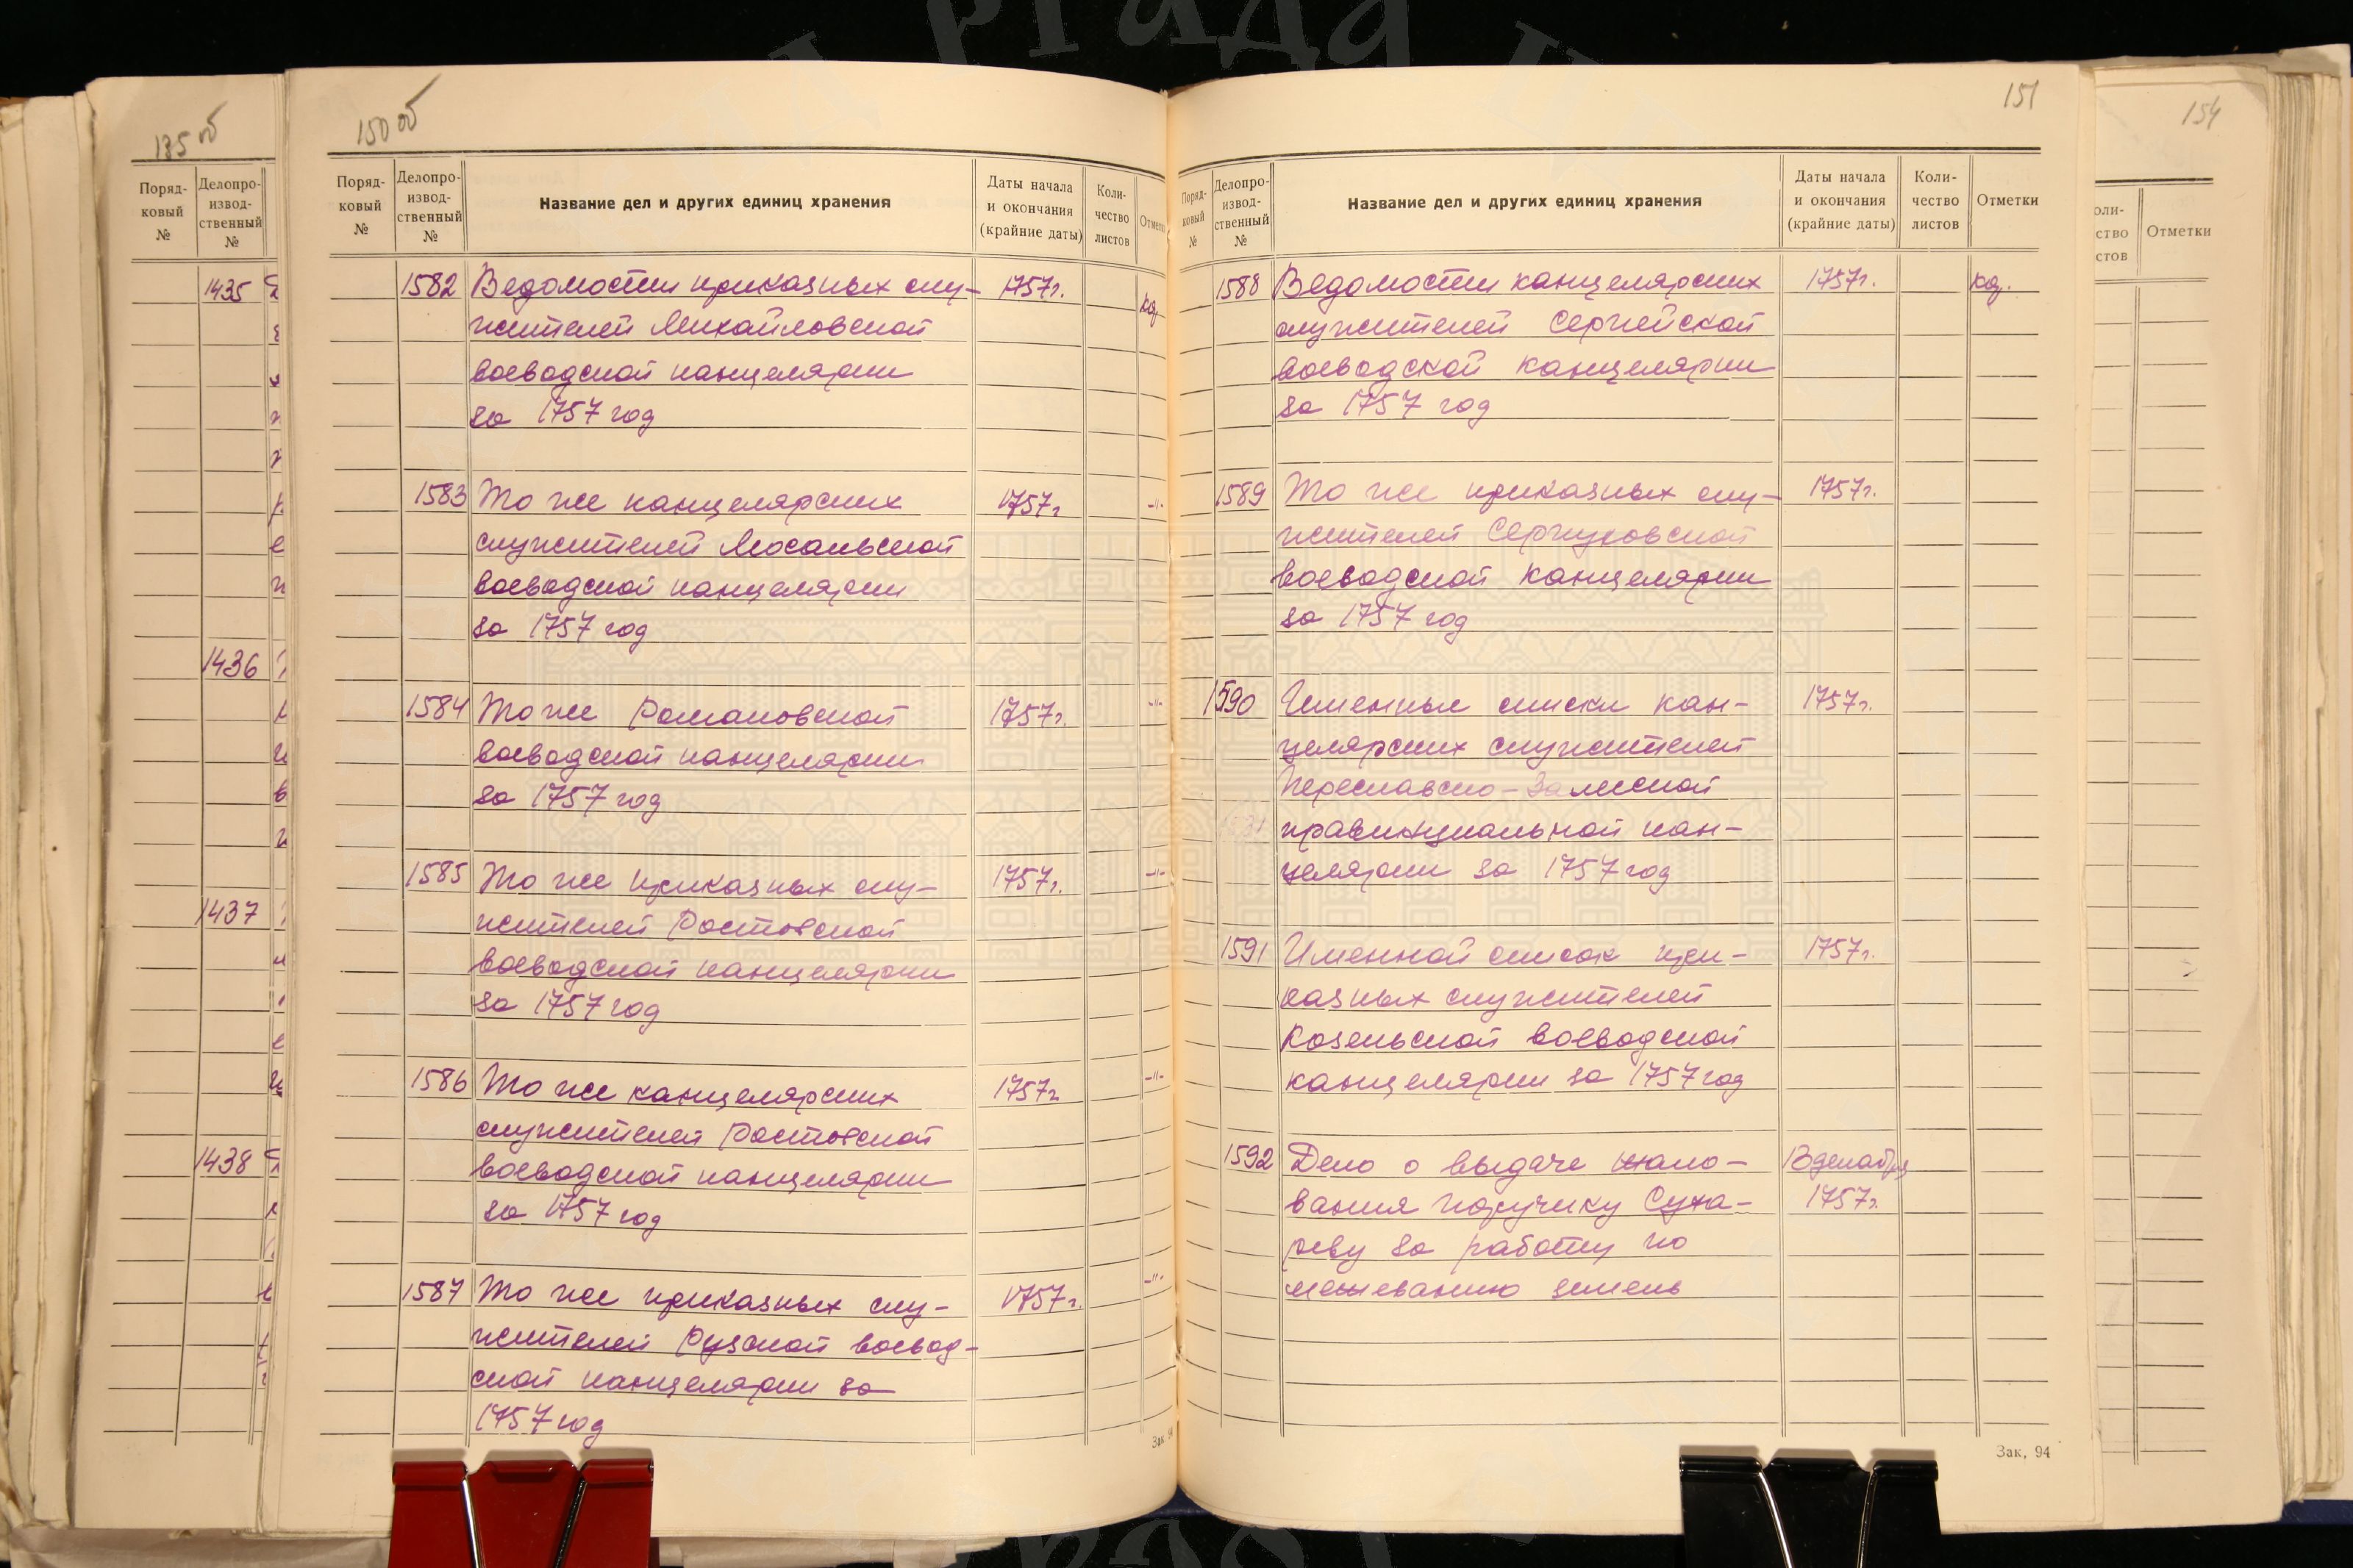 ргада
135 об
Поряд-
ковый
№
Делопро-
извод-
ственный
№
1435
1436
1437
1438
150 об
Поряд-
ковый
№
Делопро-
извод-
ственный
№
Название дел и других единиц хранения
Даты начала
и окончания
(крайние даты)
Коли-
чество
листов
1582 Ведомости приказных слу- 1757г. кд
жителей Михайловской
воеводской канцелярии
за 1757 год
1583 То же канцелярских 1757г -"-
служителей Мосальской
воеводской канцелярии
за 1757 год
1584 То же Романовской 1757г. -"-
воеводской канцелярии
за 1757 год
1585 То же приказных слу- 1757г. -"-
жителей Ростовской
воеводской канцелярии
за 1757 год
1586 То же канцелярских 1757г -"-
служителей Ростовской
воеводской канцелярии
за 1757 год
1587 То же приказных слу- 1757г. -"-
жителей Рузской воевод-
ской канцелярии за
1757 год
Зак.
151
Поряд-
ковый
№
Делопро-
извод-
ственный
№
Название дел и других единиц хранения
Даты начала
и окончания
(крайние даты)
Коли-
чество
листов
Отметки
1588 Ведомости канцелярских 1757г. кд.
служителей Серпейской
воеводской канцелярии
за 1757 год
1589 То же приказных слу- 1757г.
жителей Серпуховской
воеводской канцелярии
за 1757 год
1590 Именные списки кан- 1757г.
целярских служителей
Переславско-Залесской
провинциальной кан-
целярии за 1757 год
1591 Именной список при- 1757г.
казных служителей
Козельской воеводской
канцелярии за 1757 год
1592 Дело о выдаче жало- 13 декабря
вания поручику Суха- 1757г.
реву за работу по
межеванию земель
Зак. 94
154
оли-
ство
стов
Отметки